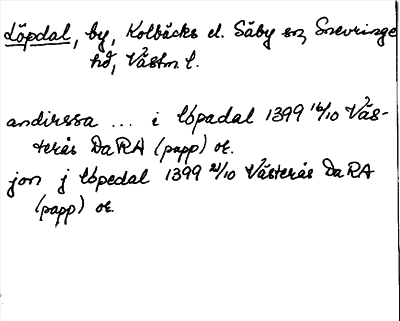 Löpdal, by, Kolbäcks el. Säby sn, Snevringe
hd, Västm l.
andirssa ... i löpadal 1399 16/10 Väs-
terås DaRA (papp) or.
jon j löpedal 1399 21/10 Västerås DaRA
(papp) or.